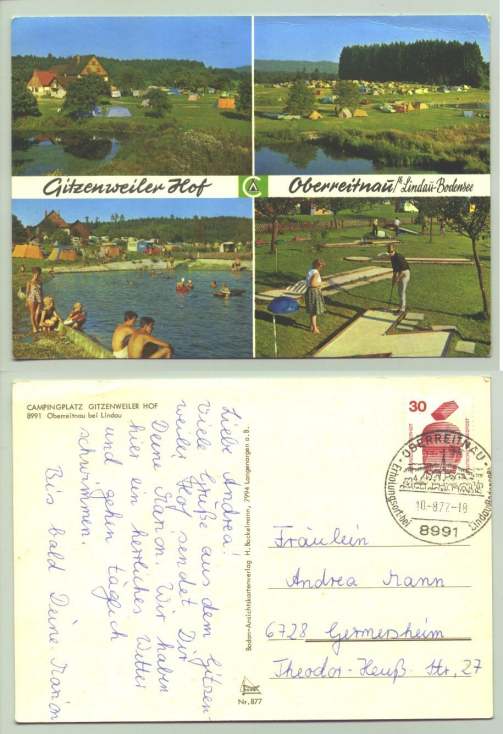 Gitzenweiler Hof
C
Oberreitnau/b. Lindau-Bodensee
CAMPINGPLATZ GITZENWEILER HOF
8991 Oberreitnau bei Lindau
Liebe Andrea!
Viele Grüße aus dem Gitzen-
weiler Hof sendet Dir
Deine Marion. Wir haben
hier ein herrliches Wetter
und gehen täglich
schwimmen.
Bis bald Deine Marion
Bodan-Ansichtskartenverlag H. Bockelmann, 7994 Langenargen a. B.
Nr. 877
30
OBERREITNAU
Erholungsort bei
Lindau
10.-8.72-18
8991
Fräulein
Andrea Mann
6728 Germersheim
Theodor-Heuß-Str, 27